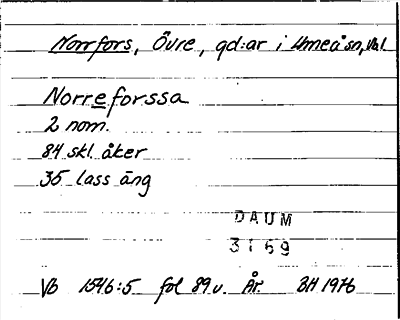 Norrfors, Övre, gd:ar i Umeå sn, Vbl
Norreforssa
2 nom.
84 skl. åker
35 lass äng
DAUM
3169
Vb 1546:5 fol 89 v. År. BH 1976